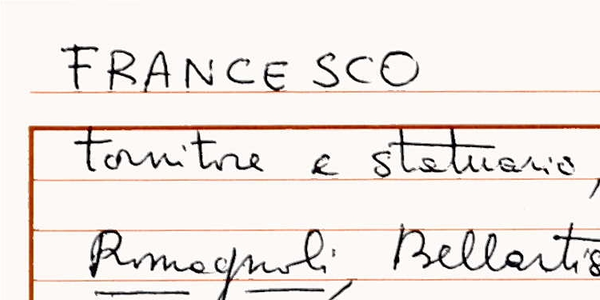 FRANCESCO
tornitore e statuario,
Romagnoli, Bellartis